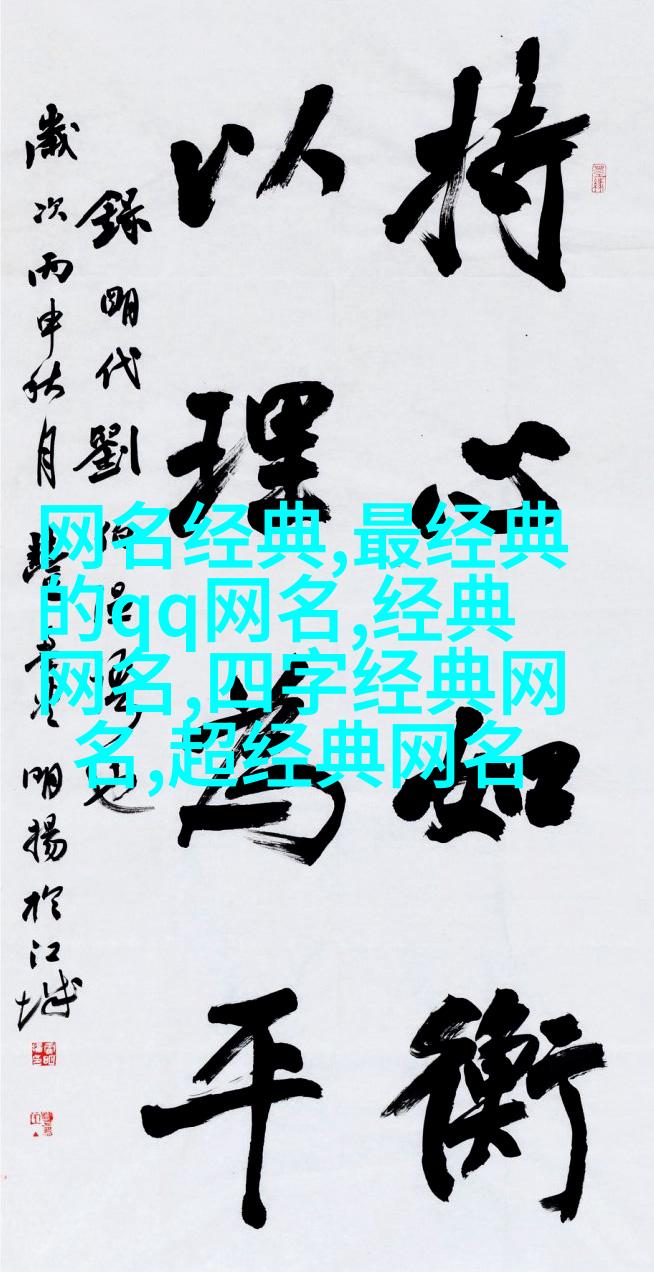 持心如衡
以理為平
錄明代劉伯温語也
歲次丙申秋月
明揚於江城
网名经典,最经典
的qq网名,经典
网名,四字经典网
名,超经典网名